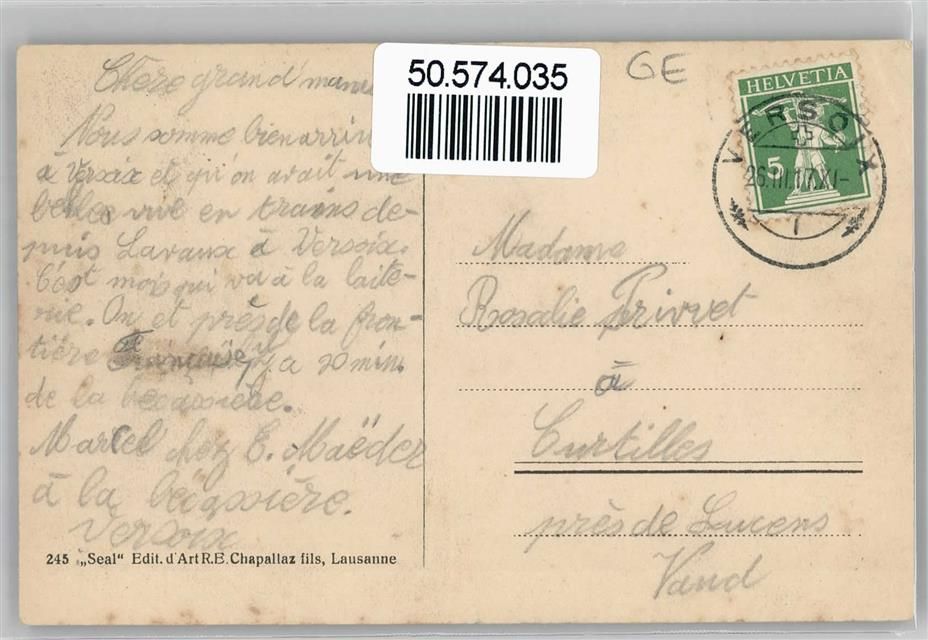 50.574.035
GE
HELVETIA
5
VERSOIX
26.III.17.XI-
1
Chere grand'
Nous somme bien
à Versoix et qu'on avait une
belles vue en trains de-
puis Lavaux à Versoix.
C'est mois qui va à la laite-
rie. On et près de la fron-
tière Française y a 20 min.
de la becassière.
Marcel chez E. Maëder
à la becassière.
Versoix
Madame
Rosalie Privet
à
Curtilles
près de Lucens
Vaud
245 „Seal“ Edit. d'Art R.E. Chapallaz fils, Lausanne